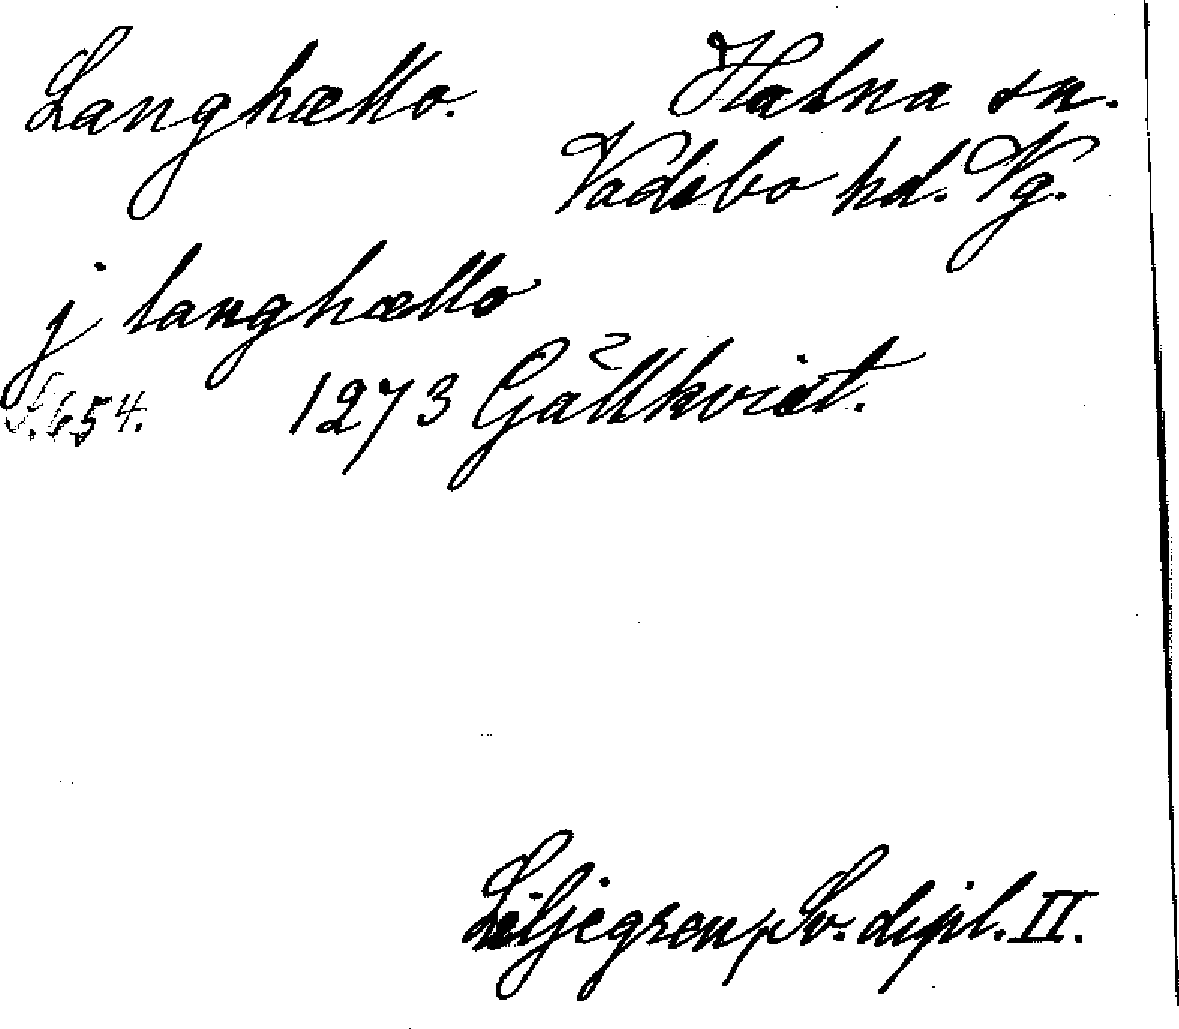 Langhællo. Halna sn.
Vadsbo hd. Vg.
j langhællo
S. 654. 1273 Gällkvist.
Liljegren, Sv. dipl. II.